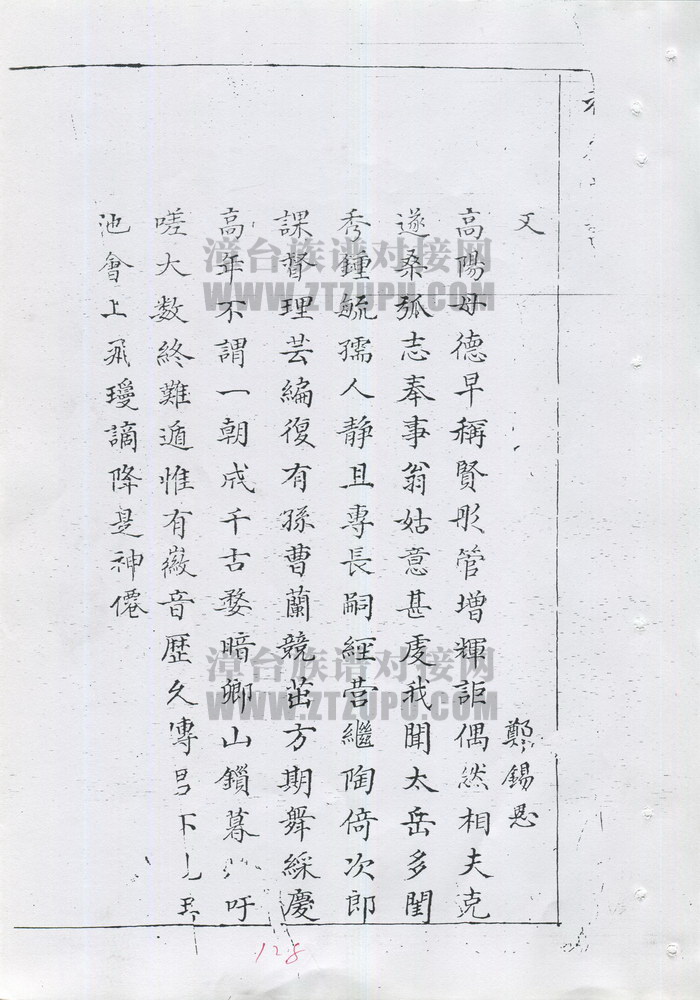 又
鄭錫恩
高陽母德早稱賢彤管增輝詎偶然相夫克
遂桑弧志奉事翁姑意甚虔我聞太岳多閨
秀鍾毓孺人靜且專長嗣經營繼陶倚次郎
課督理芸編復有孫曹蘭競茁方期舞綵慶
高年不謂一朝成千古婺暗卿山鎖暮 吁
嗟大数終難遁惟有徽音歷久傳
池會上飛瓊謫降是神僊
漳台族谱对接网
WWW.ZTZUPU.COM
漳台族谱对接网
WWW.ZTZUPU.COM
128